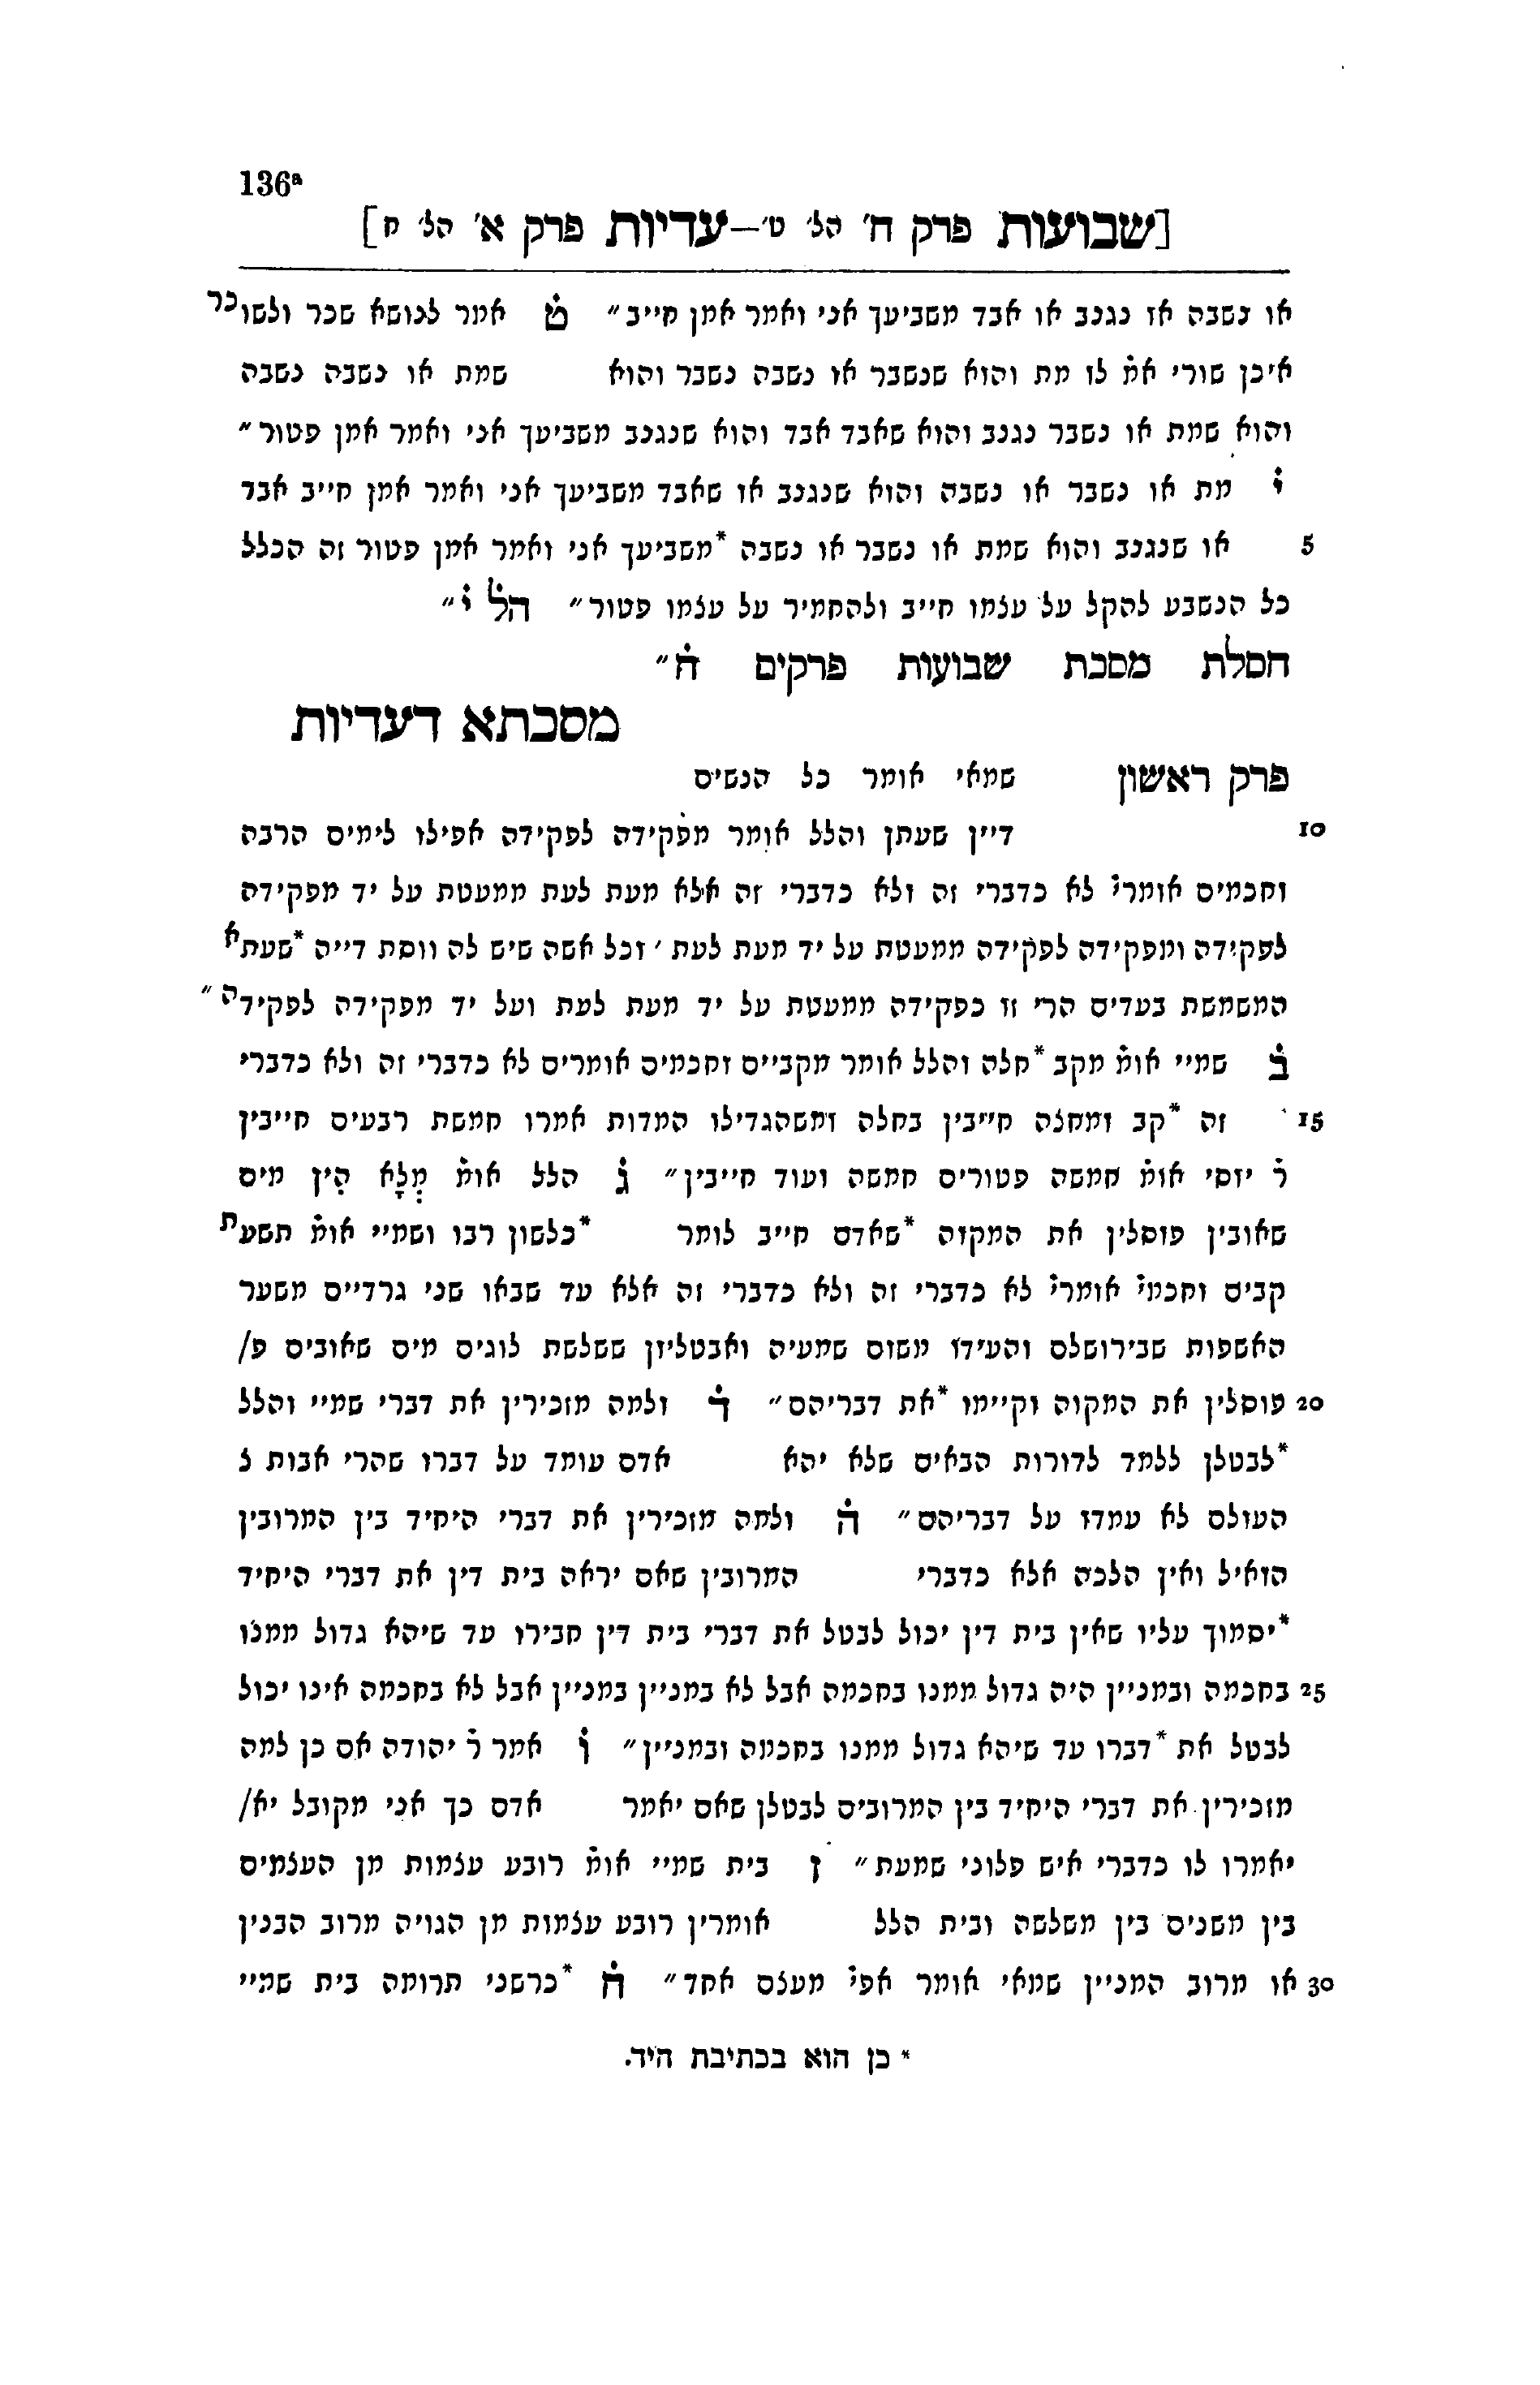 136ª
[שבועות פרק ח' הל' ט'—עדיות פרק א' הל' ח]
או נשבה או נגנב או אבד משביעך אני ואמר אמן חייב״ ט̇ אמר לנושא שכר ולשוכר
איכן שורי אמ̇ לו מת והוא שנשבר או נשבה נשבר והוא שמת או נשבה נשבה
והוא שמת או נשבר נגנב והוא שאבד אבד והוא שנגנב משביעך אני ואמר אמן פטור״
י̇ מת או נשבר או נשבה והוא שנגנב או שאבד משביעך אני ואמר אמן חייב אבד
5 או שנגנב והוא שמת או נשבר או נשבה *משביעך אני ואמר אמן פטור זה הכלל
כל הנשבע להקל על עצמו חייב ולהחמיר על עצמו פטור״ הל̇ י̇״
חסלת מסכת שבועות פרקים ח̇״
מסכתא דעדיות
פרק ראשון שמאי אומר כל הנשים
10 דיין שעתן והלל אומר מפקידה לפקידה אפילו לימים הרבה
וחכמים אומרי̇ לא כדברי זה ולא כדברי זה אלא מעת לעת ממעטת על יד מפקידה
לפקידה ומפקידה לפקידה ממעטת על יד מעת לעת ׳ וכל אשה שיש לה ווסת דייה *שעתא
המשמשת בעדים הרי זו כפקידה ממעטת על יד מעת לעת ועל יד מפקידה לפקידה״
ב̇ שמיי אומ̇ מקב *חלה והלל אומר מקביים וחכמים אומרים לא כדברי זה ולא כדברי
15 זה *קב ומחצה חייבין בחלה ומשהגדילו המדות אמרו חמשת רבעים חייבין
ר̇ יוסי אומ̇ חמשה פטורים חמשה ועוד חייבין״ ג̇ הלל אומ̇ מְלָא הִין מים
שאובין פוסלין את המקוה *שאדם חייב לומר *כלשון רבו ושמיי אומ̇ תשעת
קבים וחכמי̇ אומרי̇ לא כדברי זה ולא כדברי זה אלא עד שבאו שני גרדיים משער
האשפות שבירושלם והעידו משום שמעיה ואבטליון ששלשת לוגים מים שאובים פ/
20 פוסלין את המקוה וקיימו *את דבריהם״ ד̇ ולמה מזכירין את דברי שמיי והלל
*לבטלן ללמד לדורות הבאים שלא יהא אדם עומד על דברו שהרי אבות ל
העולם לא עמדו על דבריהם״ ה̇ ולמה מזכירין את דברי היחיד בין המרובין
הואיל ואין הלכה אלא כדברי המרובין שאם יראה בית דין את דברי היחיד
*יסמוך עליו שאין בית דין יכול לבטל את דברי בית דין חבירו עד שיהא גדול ממנו
25 בחכמה ובמניין היה גדול ממנו בחכמה אבל לא במניין במניין אבל לא בחכמה אינו יכול
לבטל את *דברו עד שיהא גדול ממנו בחכמה ובמניין״ ו̇ אמר ר̇ יהודה אם כן למה
מזכירין את דברי היחיד בין המרובים לבטלן שאם יאמר אדם כך אני מקובל יא/
יאמרו לו כדברי איש פלוני שמעת״ ז בית שמיי אומ̇ רובע עצמות מן העצמים
בין משנים בין משלשה ובית הלל אומרין רובע עצמות מן הגויה מרוב הבנין
30 או מרוב המניין שמאי אומר אפי̇ מעצם אחד״ ח̇ *כרשני תרומה בית שמיי
* כן הוא בכתיבת היד.